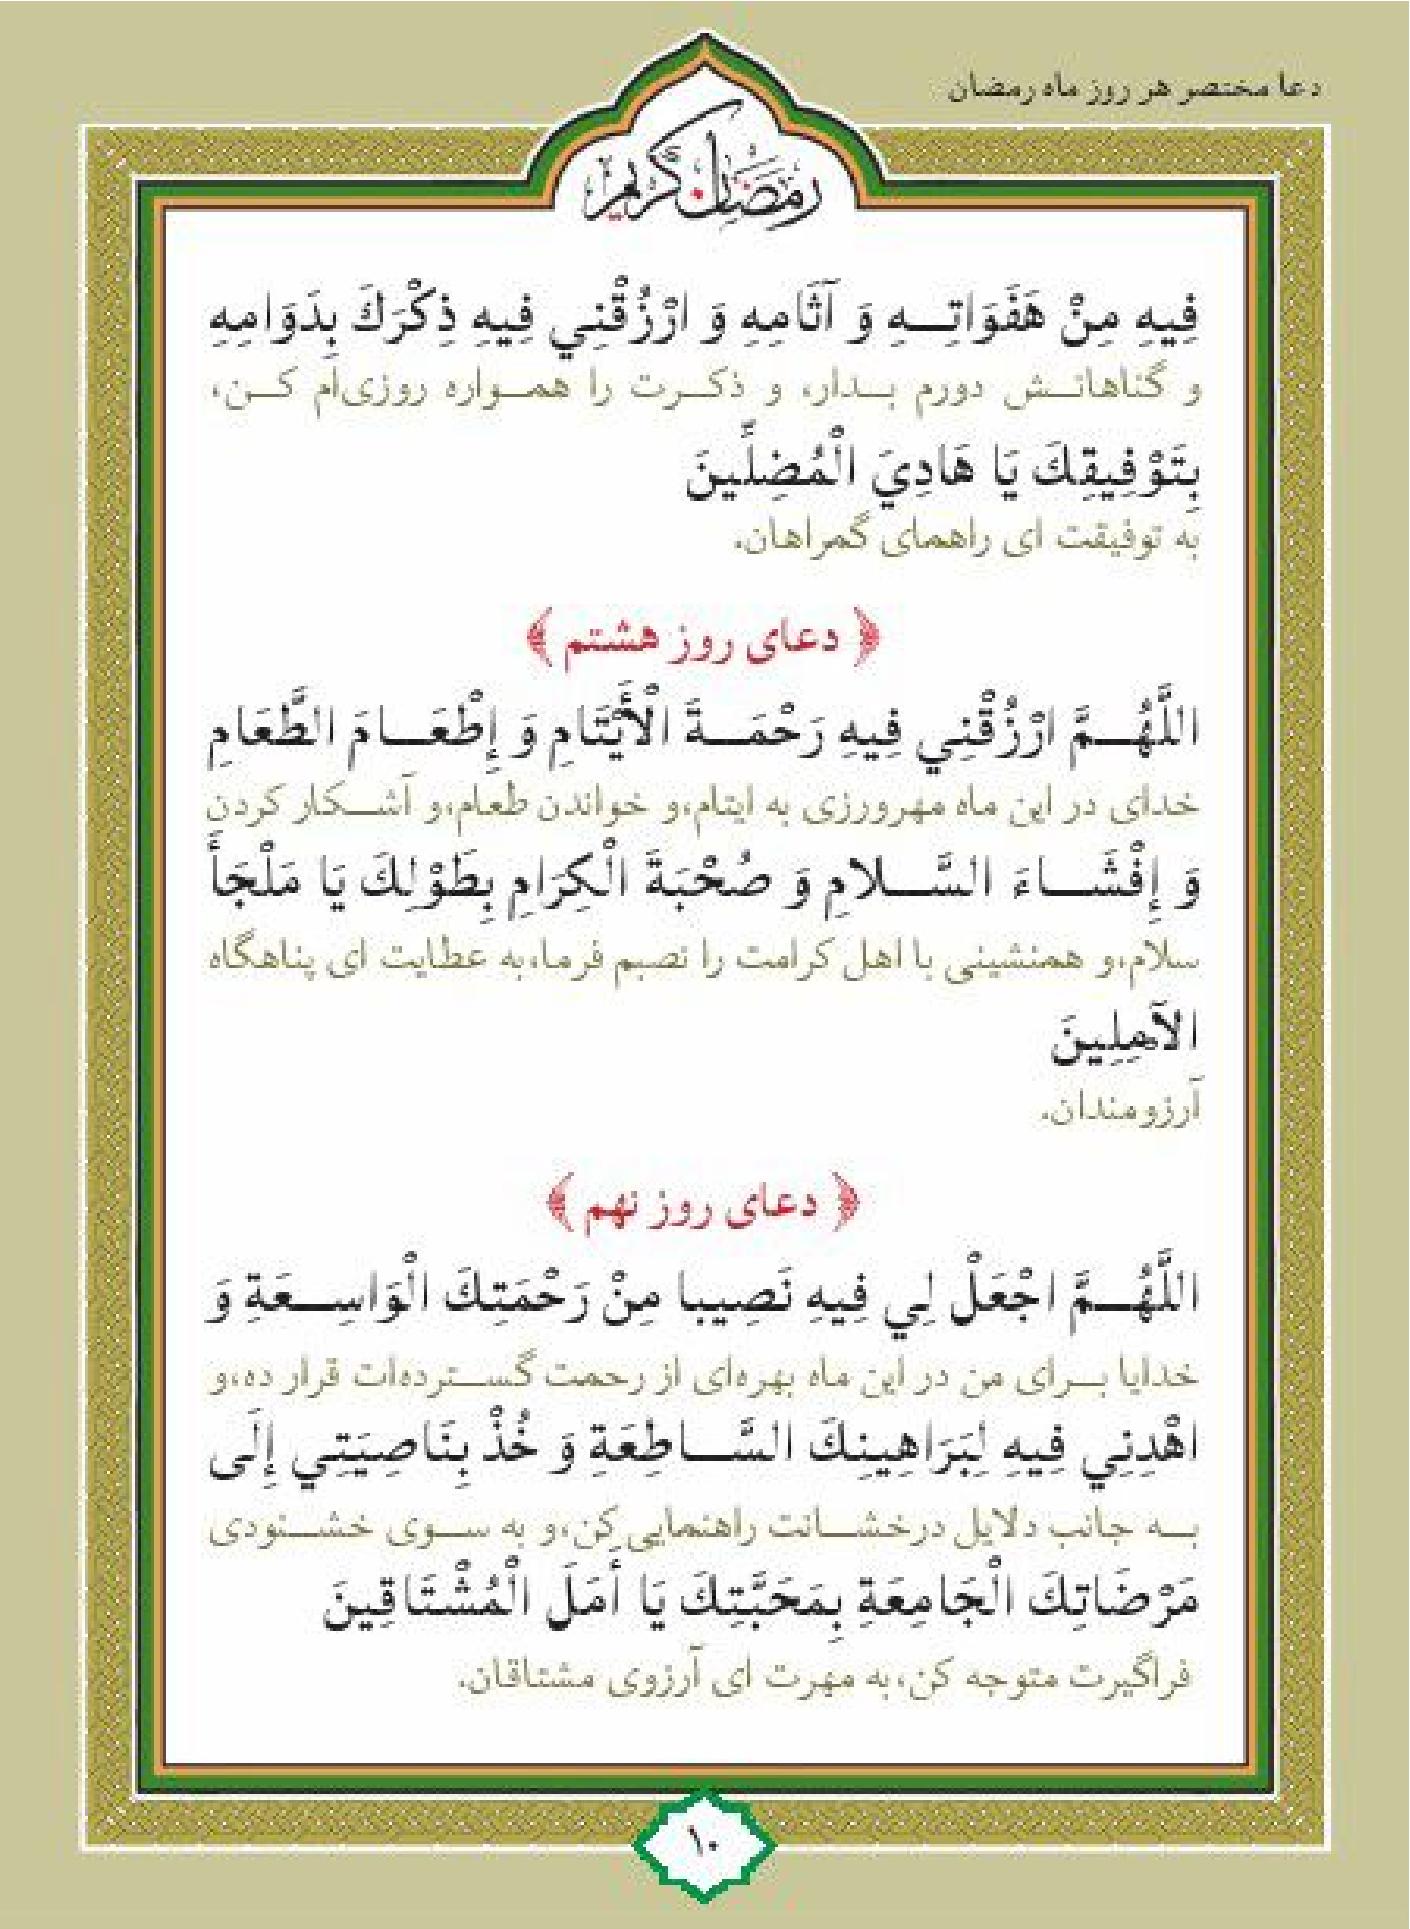 دعا مختصر هر روز ماه رمضان
رمضان کریم
فِيهِ مِنْ هَفَوَاتِـــهِ وَ آثَامِهِ وَ ارْزُقْنِي فِيهِ ذِكْرَكَ بِدَوَامِهِ
و گناهانــش دورم بــدار، و ذکــرت را همــواره روزی‌ام کــن،
بِتَوْفِيقِكَ يَا هَادِيَ الْمُضِلِّينَ
به توفیقت ای راهمای گمراهان.
﴿ دعای روز هشتم ﴾
اللَّهُـــمَّ ارْزُقْنِي فِيهِ رَحْمَـــةَ الْأَيْتَامِ وَ إِطْعَـــامَ الطَّعَامِ
خدای در این ماه مهرورزی به ایتام،و خواندن طعام،و آشــکار کردن
وَ إِفْشَـــاءَ السَّـــلامِ وَ صُحْبَةَ الْكِرَامِ بِطَوْلِكَ يَا مَلْجَأَ
سلام،و همنشینی با اهل کرامت را نصبم فرما،به عطایت ای پناهگاه
الآمِلِينَ
آرزومندان.
﴿ دعای روز نهم ﴾
اللَّهُـــمَّ اجْعَلْ لِي فِيهِ نَصِيبا مِنْ رَحْمَتِكَ الْوَاسِـــعَةِ وَ
خدایا بــرای من در این ماه بهره‌ای از رحمت گســترده‌ات قرار ده،و
اهْدِنِي فِيهِ لِبَرَاهِينِكَ السَّـــاطِعَةِ وَ خُذْ بِنَاصِيَتِي إِلَى
بــه جانب دلایل درخشــانت راهنمایی کن،و به ســوی خشــنودی
مَرْضَاتِكَ الْجَامِعَةِ بِمَحَبَّتِكَ يَا أَمَلَ الْمُشْتَاقِينَ
فراگیرت متوجه کن،به مهرت ای آرزوی مشتاقان.
۱۰